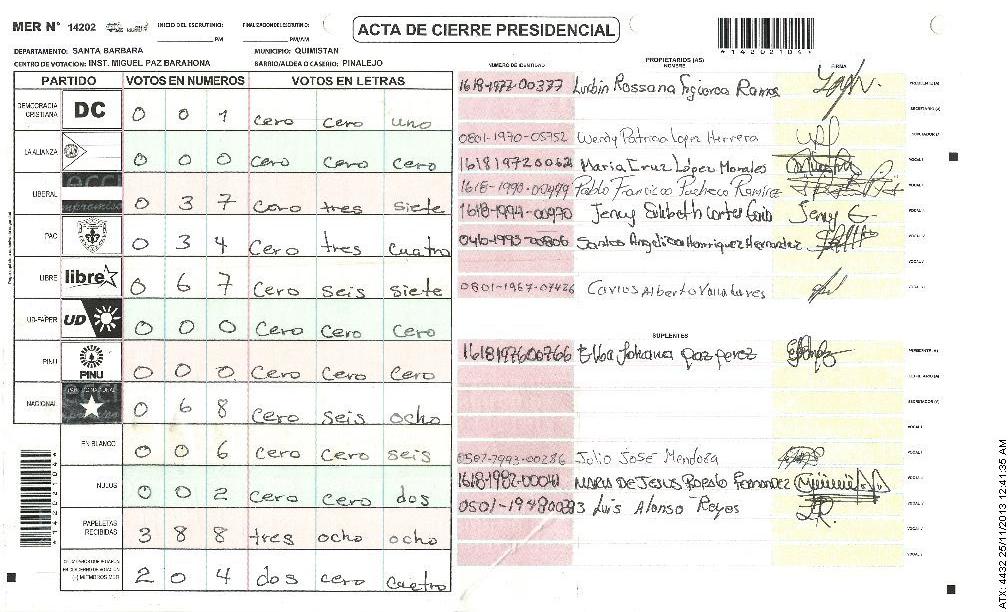 MER N° 14202 INICIO DEL ESCRUTINIO: PM FINALIZACION ESCRUTINIO: PM/AM
ACTA DE CIERRE PRESIDENCIAL
*14202101*
DEPARTAMENTO: SANTA BARBARA MUNICIPIO: QUIMISTAN
CENTRO DE VOTACION: INST. MIGUEL PAZ BARAHONA BARRIO/ALDEA O CASERIO: PINALEJO
PARTIDO VOTOS EN NUMEROS VOTOS EN LETRAS
DEMOCRACIA CRISTIANA DC 0 0 1 cero cero uno
LA ALIANZA 0 0 0 cero cero cero
LIBERAL 0 3 7 cero tres siete
PAC 0 3 4 cero tres cuatro
LIBRE libre 0 6 7 cero seis siete
UD-FAPER UD 0 0 0 cero cero cero
PINU PINU 0 0 0 cero cero cero
NACIONAL 0 6 8 cero seis ocho
EN BLANCO 0 0 6 cero cero seis
NULOS 0 0 2 cero cero dos
PAPELETAS RECIBIDAS 3 8 8 tres ocho ocho
(-) MIEMBROS MER 2 0 4 dos cero cuatro
PROPIETARIOS (AS)
NUMERO DE IDENTIDAD NOMBRE FIRMA
1618-1977-00337 Rossana Figueroa Ramos PRESIDENTE (A)
SECRETARIO (A)
0801-1970-05752 Wendy Patricia Lopez Herrera
1618197200 Maria Cruz López Morales VOCAL I
1618-1990-00479 Pablo Francisco Pacheco Ramirez
1618-1994-00970 Jency Jency E.
Santos Angelica Henriquez Hernandez
0801-1967-07426 Carlos Alberto
SUPLENTES
1618197600766 Elba Johana paz perez PRESIDENTE (A)
Julio José Mendoza
1618-1982-00041 MARIA DE JESUS Fernandez
0501-1948 Luis Alonso Reyes
ATX: 4432 25/11/2013 12:41:35 AM